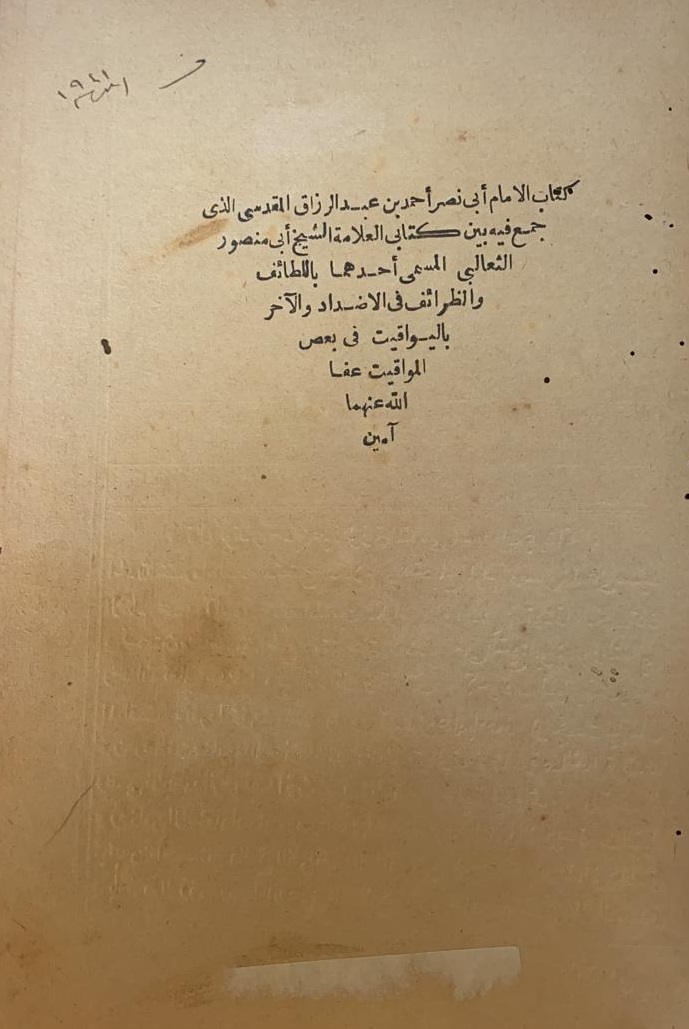 ١٩٤١
كتاب الامام أبى نصر أحمد بن عبد الرزاق المقدسى الذى
جمع فيه بين كتابى العلامة الشيخ أبى منصور
الثعالبى المسمى أحدهما باللطائف
والظرائف فى الاضداد والآخر
باليواقيت فى بعض
المواقيت عفا
الله عنهما
آمين